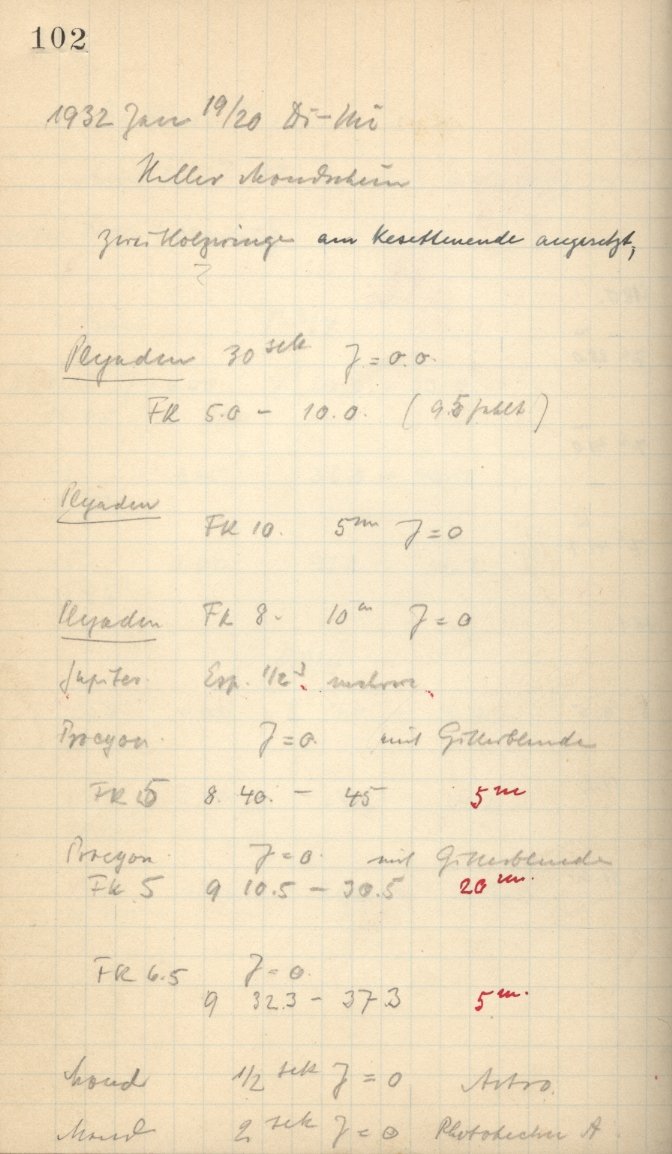 102
1932 Jan 19/20 Di-Mi
Heller Mondschein
zwei Holzringe am Kesettenende angesetzt,
?
Plejaden 30 sek J = 0.0.
FK 5.0 - 10.0. (9.5 fehlt)
Plejaden
FK 10. 5m J = 0
Plejaden FK 8. 10m J = 0
Jupiter. Exp. 1/2s mehrere
Procyon J = 0. mit Gitterblende
FK 5 8. 40. - 45 5m
Procyon. J = 0. mit Gitterblende
FK 5 9 10.5 - 30.5 20m.
FK 6.5 J = 0.
9 32.3 - 37.3 5m.
Mond 1/2 sek J = 0 Astro.
Mond 2 sek J = 0 A